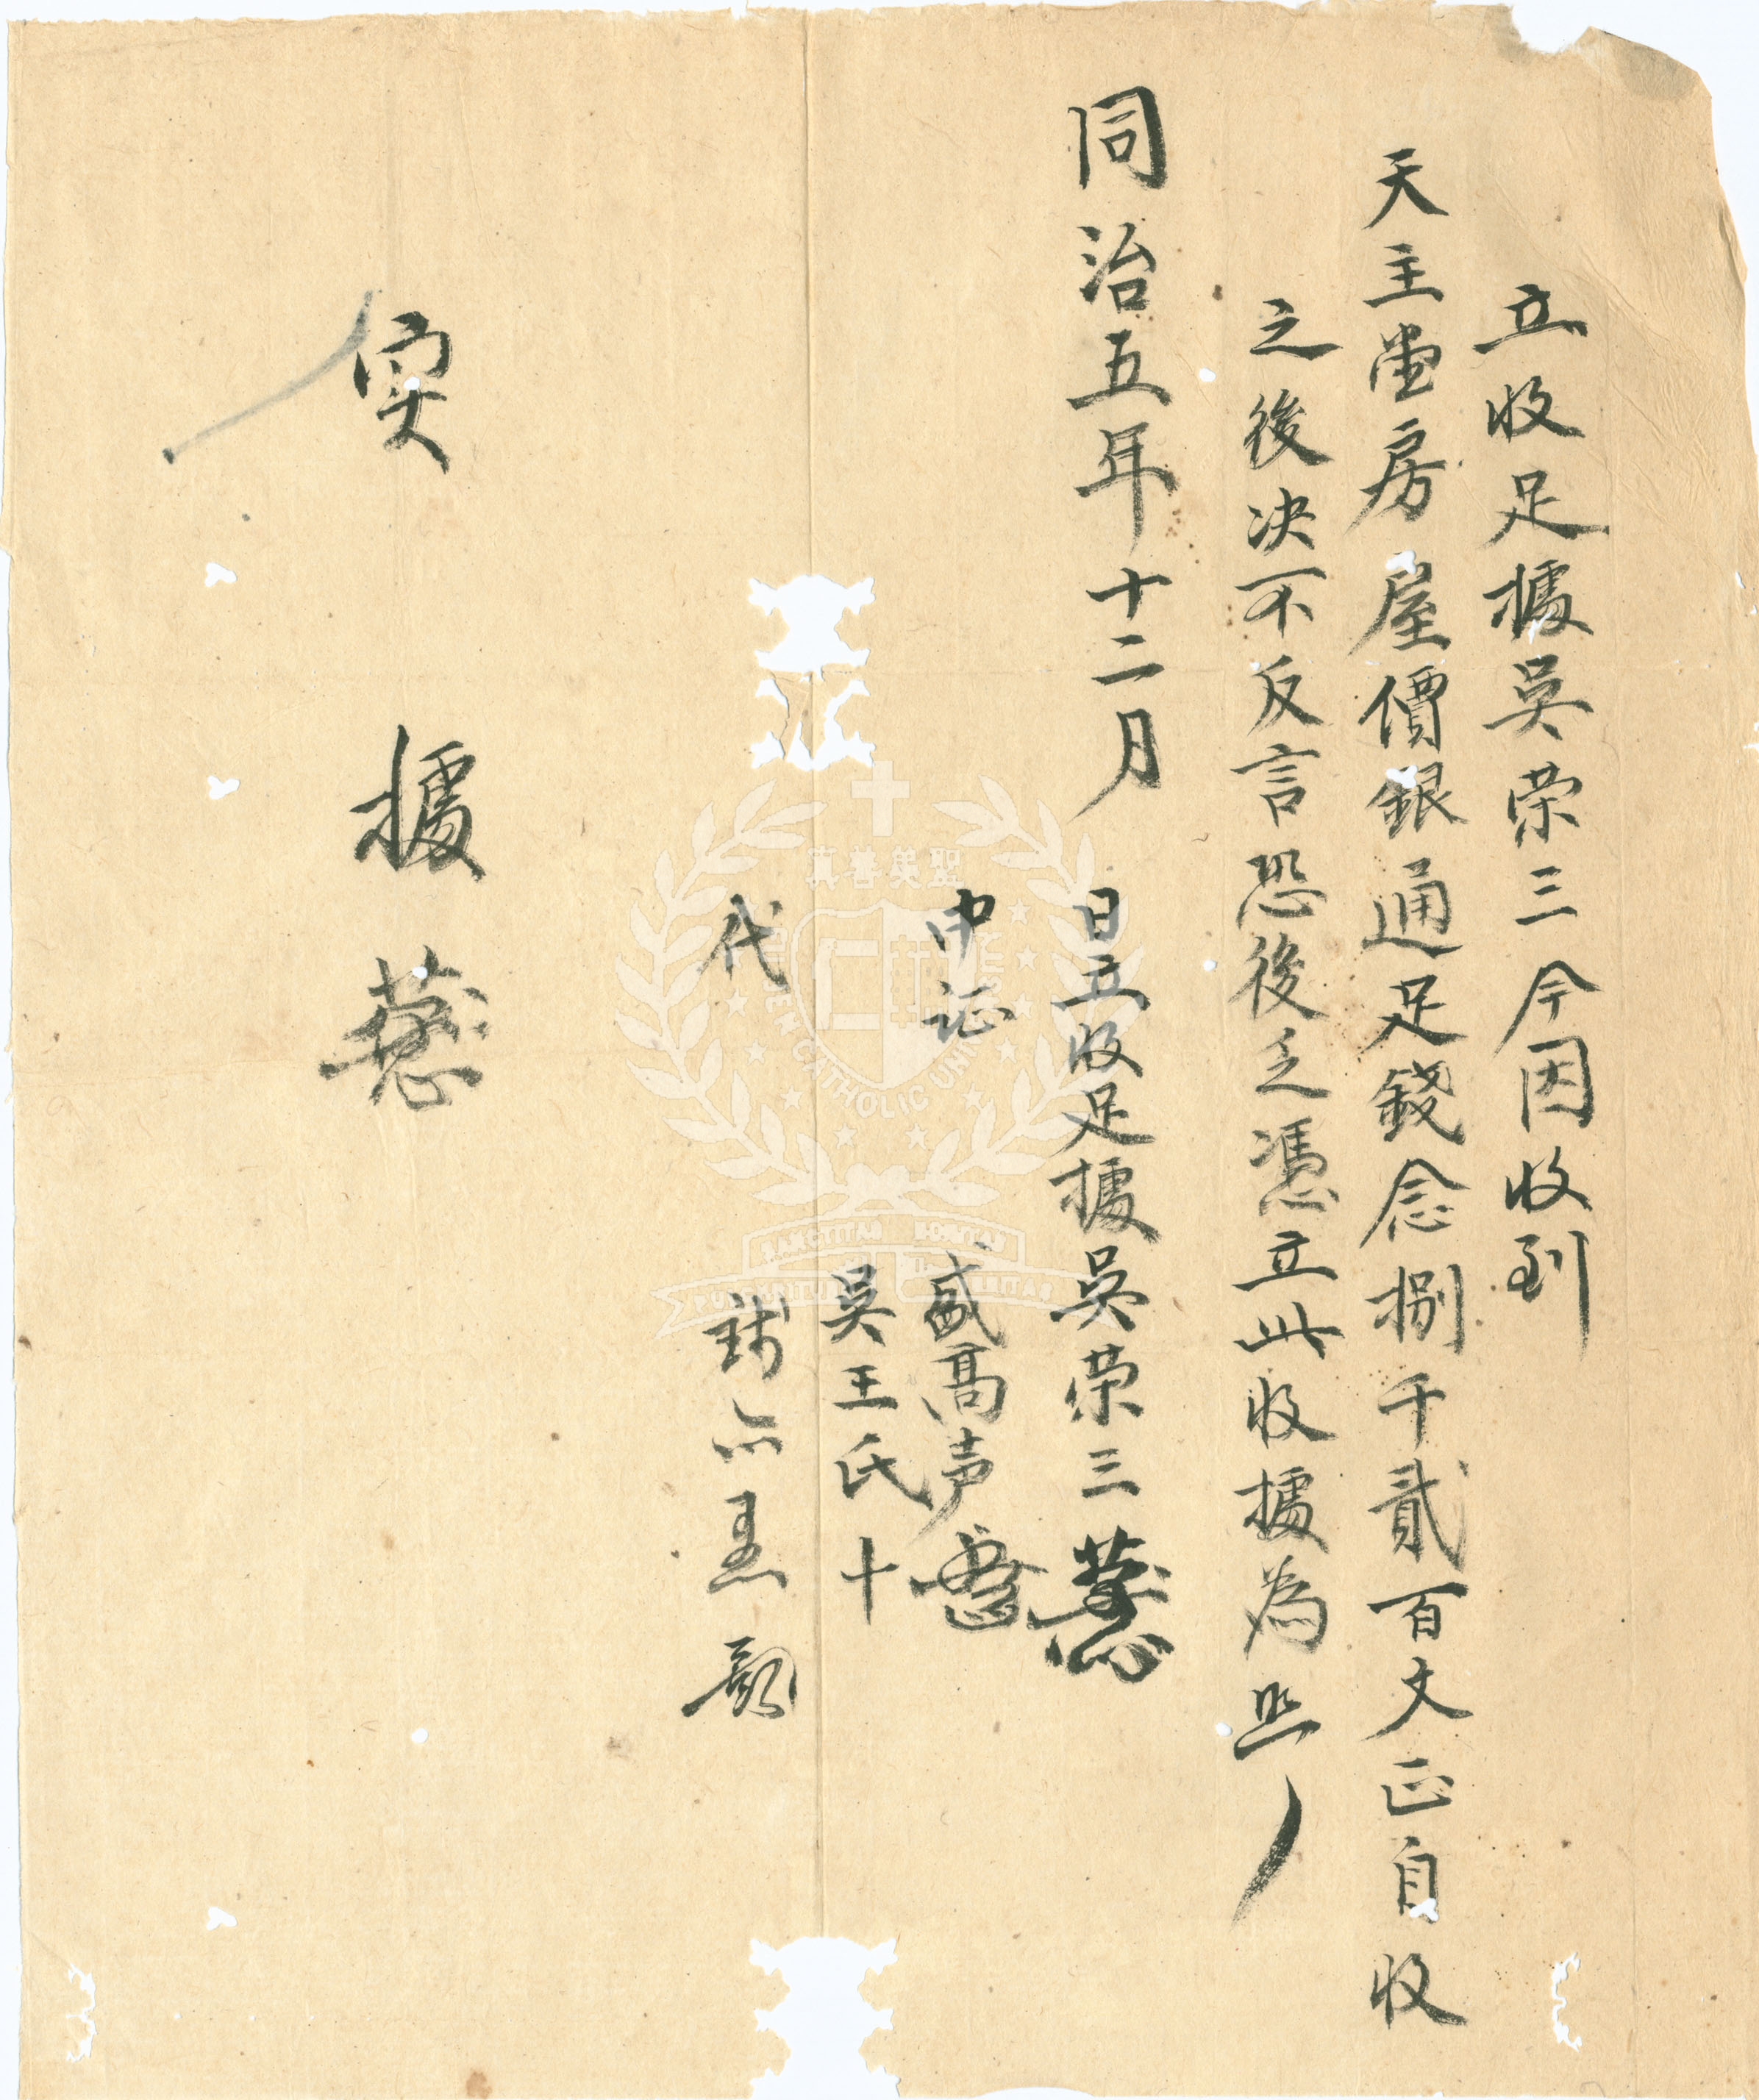 立收足據吳荣三今因收到
天主堂房屋價銀通足錢念捌千貳百文正自收
之後決不反言恐後乏憑立此收據為照
同治五年十二月 日立收足據吳荣三
中证 戚高声
吳王氏十
代
实據
真善美聖
CATHOLIC UNI
SANCTITAS BONITAS